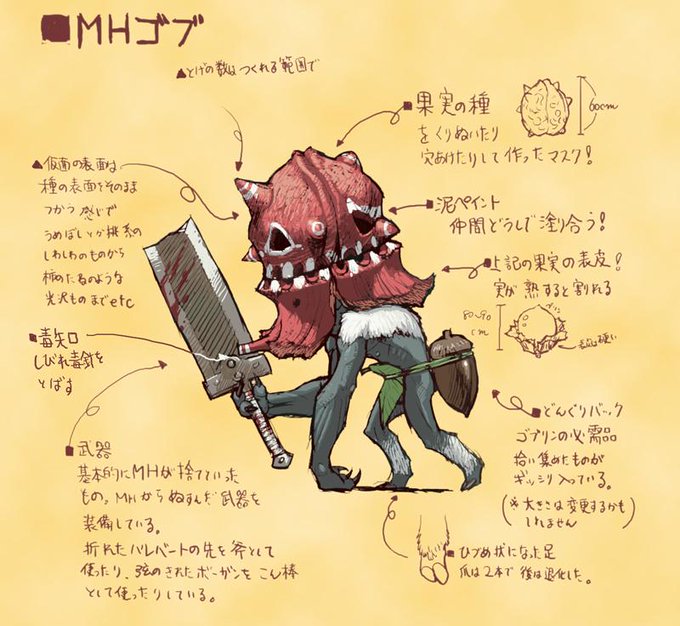 ■MHゴブ
▲とげの数はつくれる範囲で
■果実の種
をくりぬいたり
穴あけたりして作ったマスク!
60cm
▲仮面の表面は
種の表面をそのまま
つかう感じで
うめぼしとか桃系の
しわしわのものから
柿のたねのような
光沢ものまでetc
■泥ペイント
仲間どうしで塗り合う!
■上記の果実の表皮!
実が熟すると割れる
80~90
cm
■毒矢口
しびれ毒気を
とばす
■武器
基本的にMHが捨てていった
もの。MHからぬすんだ武器を
装備している。
折れたハルバートの先を斧として
使ったり、弦のきれたボーガンをこん棒
として使ったりしている。
■どんぐりバック
ゴブリンの必需品
拾い集めたものが
ギッシリ入っている。
(※大きさは変更するかも
しれません)
■ひづめ状になった足
爪は2本で後は退化した。